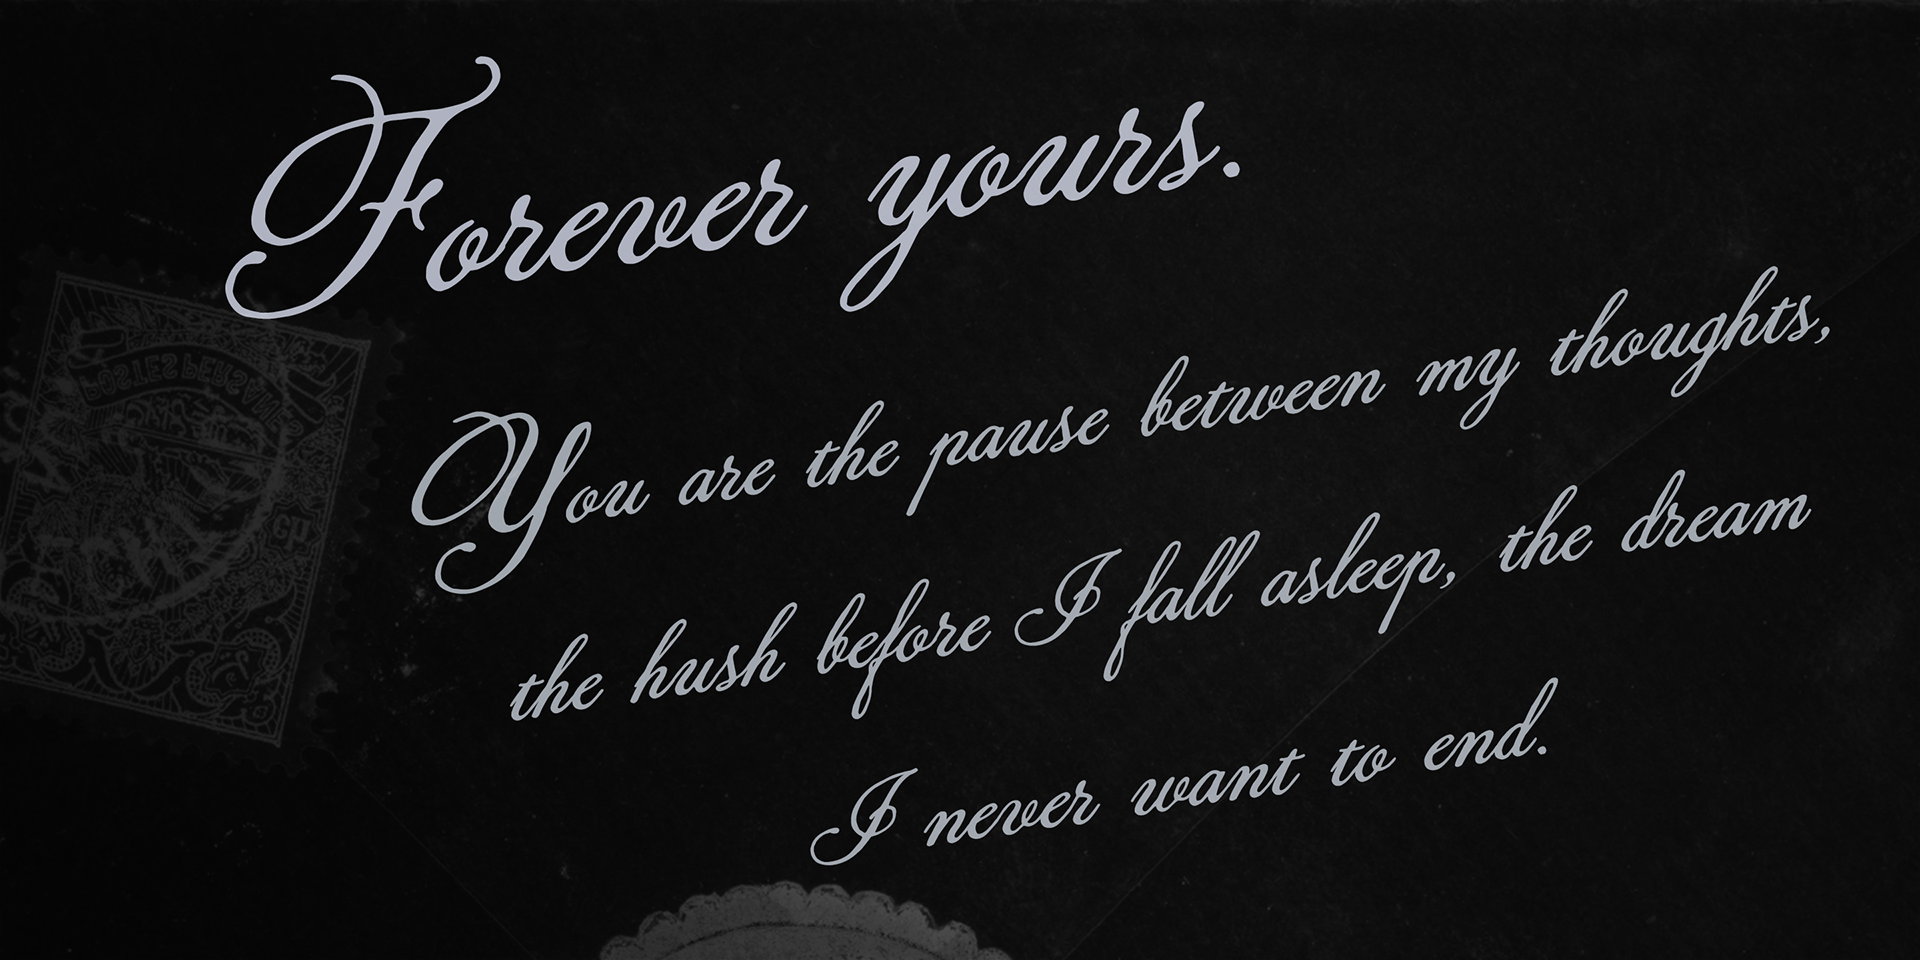 Forever yours.
You are the pause between my thoughts,
the hush before I fall asleep, the dream
I never want to end.
POSTES PERSANE